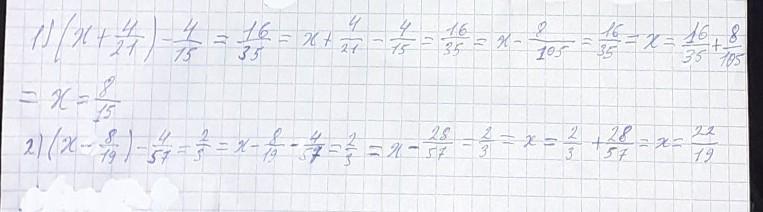 1) (x + 4/21) - 4/15 = 16/35 = x + 4/21 - 4/15 = 16/35 = x - 8/105 = 16/35 = x = 16/35 + 8/105
= x = 8/15
2) (x - 8/19) - 4/57 = 2/3 = x - 8/19 - 4/57 = 2/3 = x - 28/57 = 2/3 = x = 2/3 + 28/57 = x = 22/19